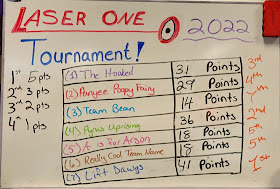 LASER ONE 2022
Tournament!
1st 5 pts
2nd 3 pts
3rd 2 pts
4th 1 pts
(1) The Hooked 31 Points 3rd
(2) Poopy Fairy 29 Points 4th
(3) Team Bean 14 Points
(4) Uprising 36 Points 2nd
(5) A is for Arson 18 Points 5th
(6) Really Cool Team Name 18 Points 5th
(7) Lift Dawgs 41 Points 1st